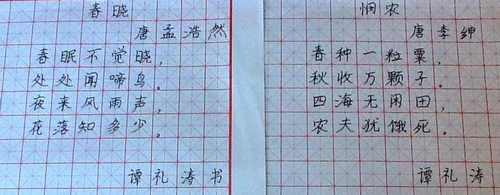 春晓
唐孟浩然
春眠不觉晓，
处处闻啼鸟。
夜来风雨声，
花落知多少。
谭礼涛书
悯农
唐李绅
春种一粒粟，
秋收万颗子。
四海无闲田，
农夫犹饿死。
谭礼涛